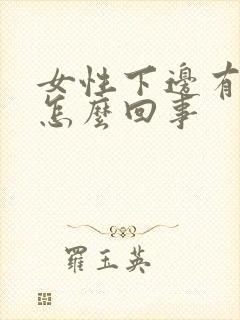 女性下邊有
怎麼回事
羅玉英